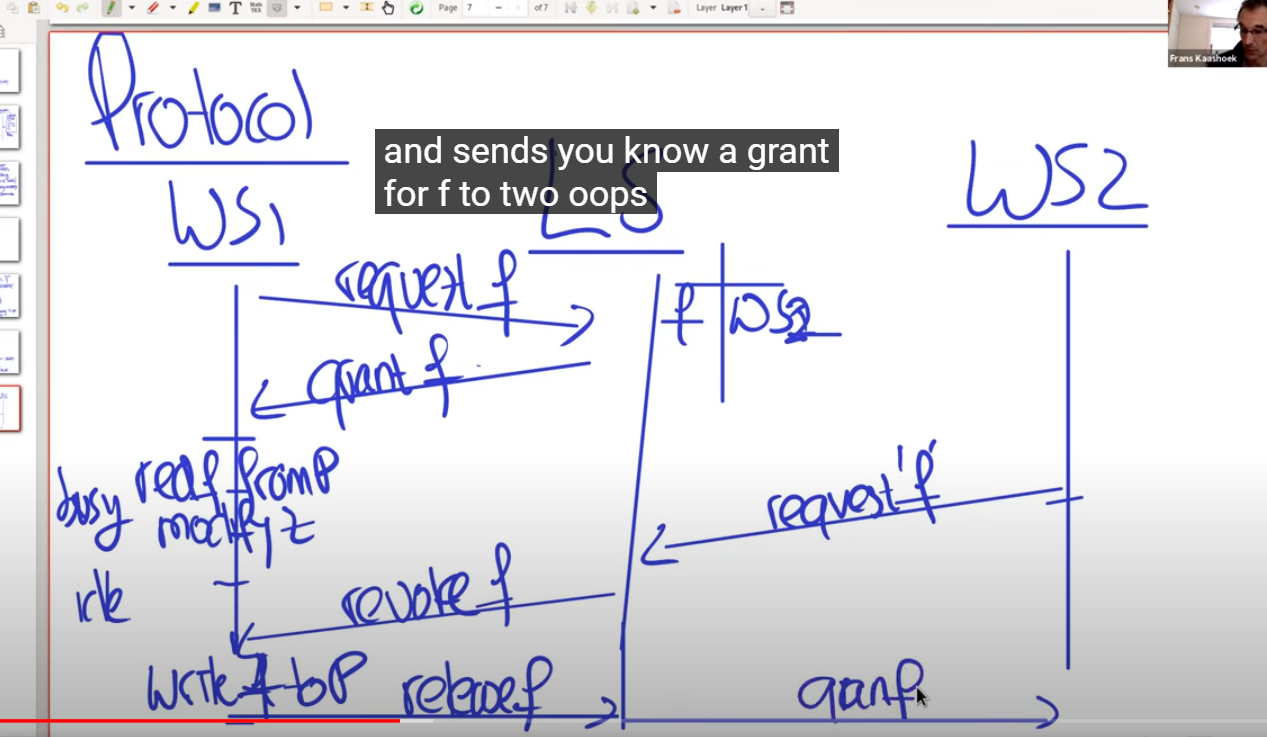 Page 7 of 7 Layer Layer 1
Frans Kaashoek
Protocol
and sends you know a grant
for f to two oops
WS1 LS WS2
request f
f WS2
grant f
busy read f from P
modify z
request 'f'
idle
revoke f
write f to P release f grant f